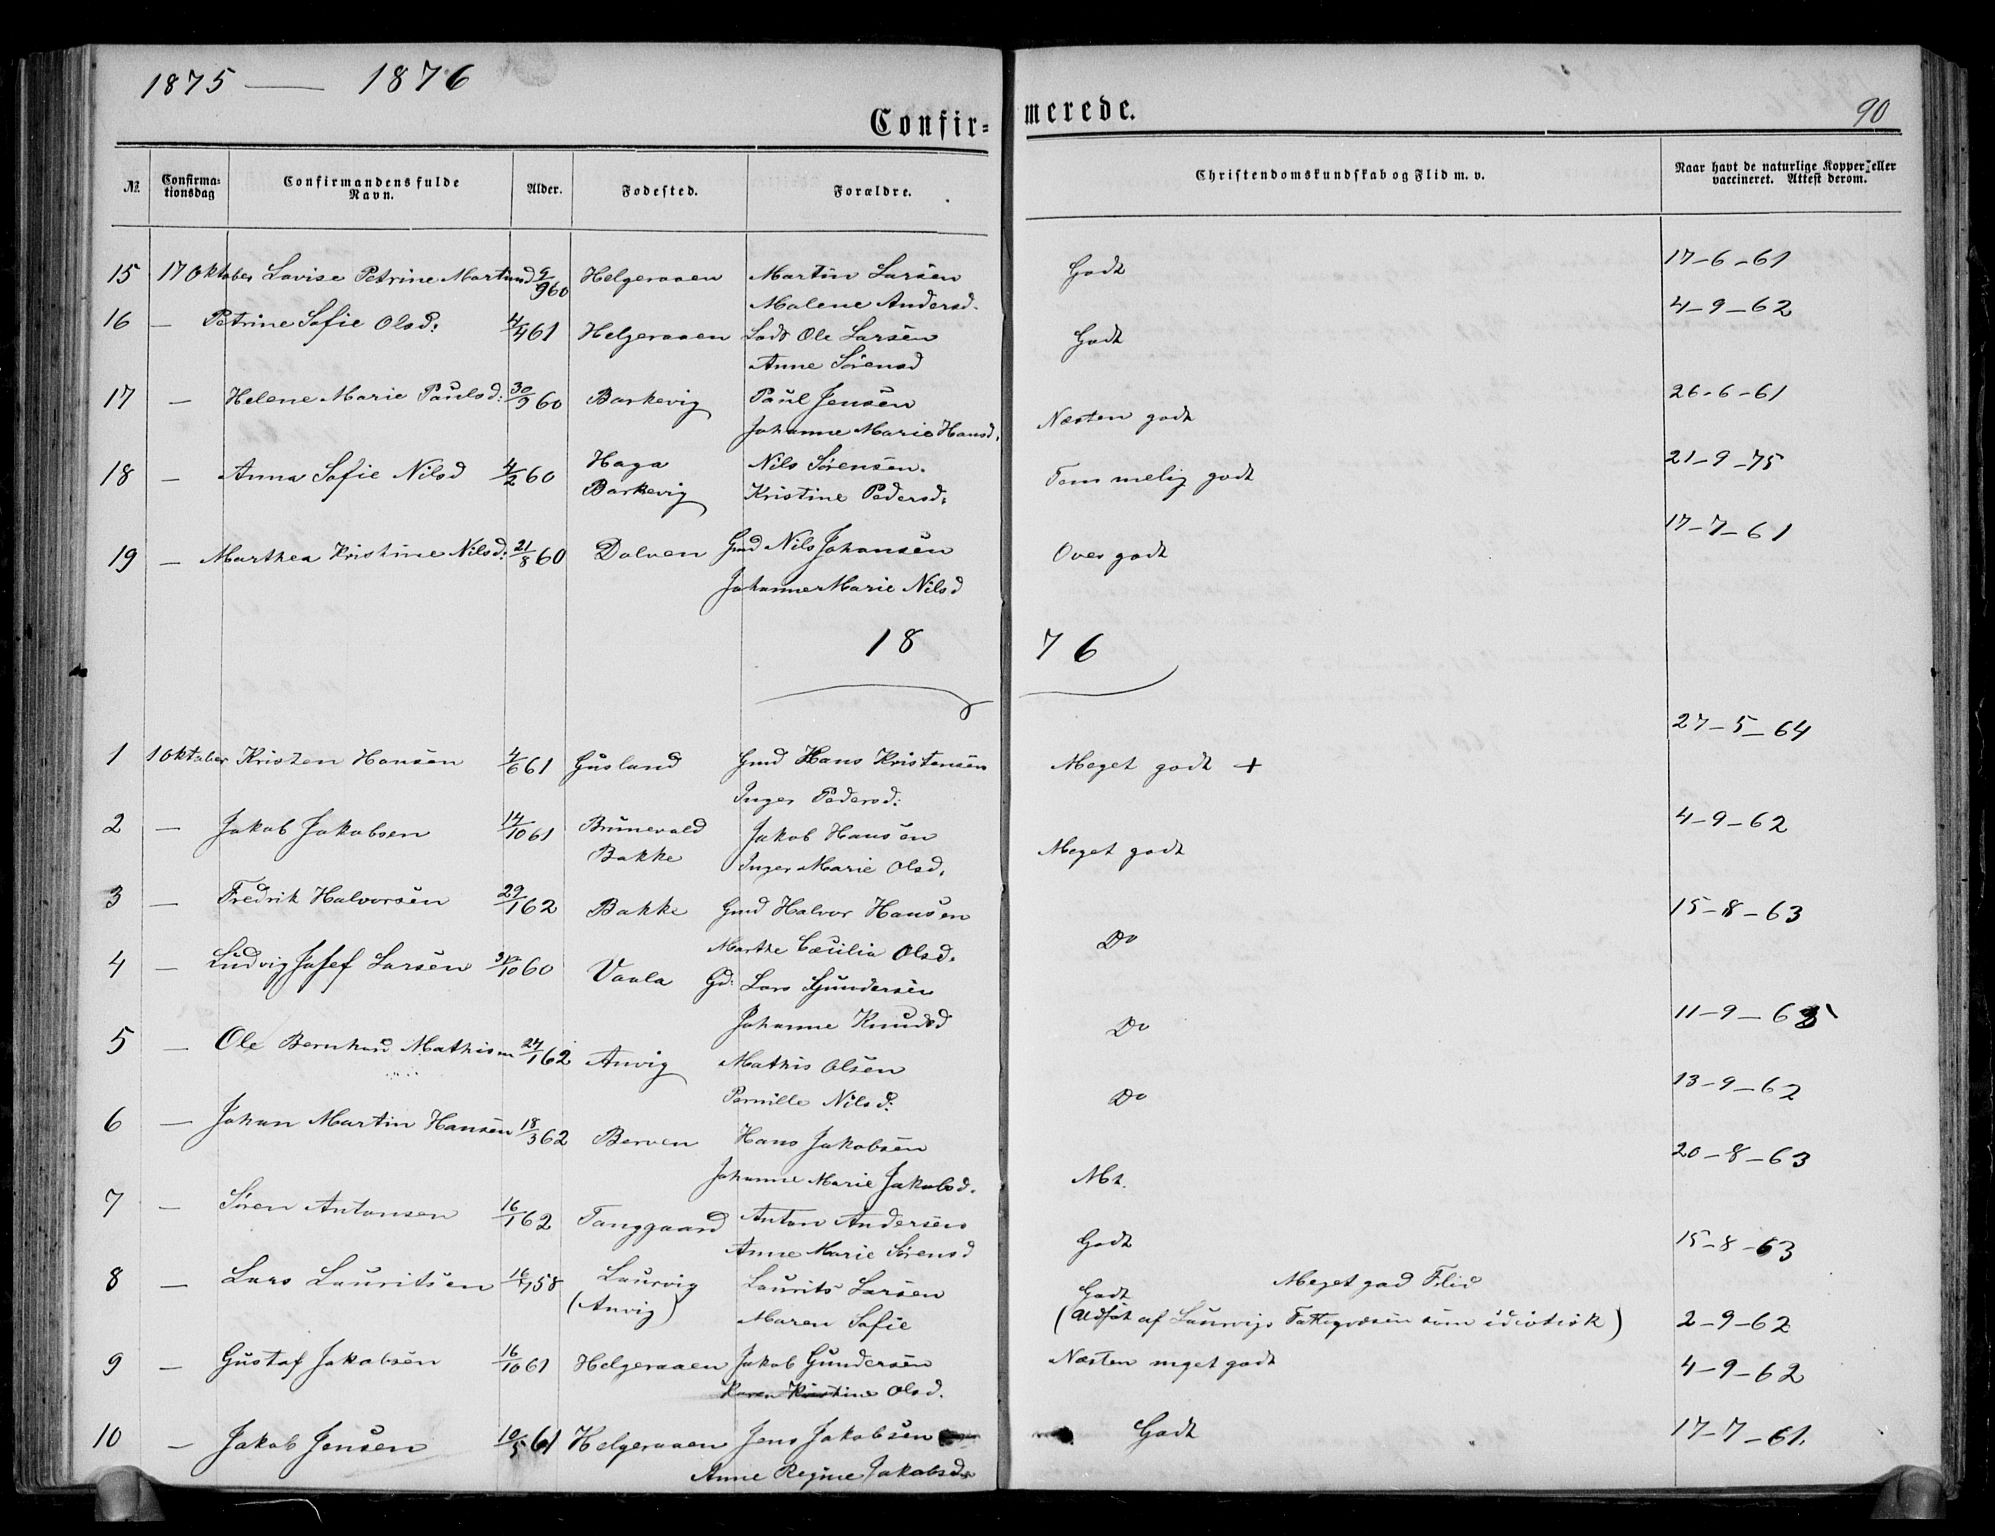 1875 — 1876
Confir=
merede.
90
№
Confirma-
tionsdag
Confirmandens fulde
Navn.
Alder.
Fodested.
Forældre.
Christendomskundskab og Flid m. v.
Naar havt de naturlige Kopper eller
vaccineret. Attest derom.
15 17 Oktober Lovise Petrine Martinsd 9/9 60 Helgeraaen Martin Larsen Godt 17-6-61
Malene Andersd.
16 — Petrine Sofie Olsd: 4/4 61 Helgeraaen Ole Larsen Godt 4-9-62
Anne Sørensd
17 — Helene Marie Paulsd: 30/9 60 Barkevig Paul Jensen Næsten godt 26-6-61
Johanne Marie Hansd.
18 — Anna Sofie Nilsd 4/2 60 Haga Nils Sørensen. Temmelig godt 21-9-75
Barkevig Kristine Pedersd:
19 — Marthea Kristine Nilsd: 21/8 60 Dolven Gmd Nils Johansen Over godt 17-7-61
Johanne Marie Nilsd
18 76
1 1 Oktober Kristen Hansen 4/6 61 Gusland Gmd Hans Kristensen Meget godt + 27-5-64
Inger Pedersd:
2 — Jakob Jakobsen 14/10 61 Brunevald Jakob Hansen Meget godt 4-9-62
Bakke Inger Marie Olsd.
3 — Fredrik Halvorsen 29/1 62 Bakke Gmd Halvor Hansen Do 15-8-63
Marthe Cæcilia Olsd.
4 — Ludvig Josef Larsen 30/10 60 Vaala Gd: Lars Gundersen Do 11-9-63
Johanne Knudsd
5 — Ole Bernhard Mathisen 27/1 62 Anvig Mathis Olsen Do 13-9-62
Pernille Nilsd:
6 — Johan Martin Hansen 18/3 62 Berven Hans Jakobsen Mt. 20-8-63
Johanne Marie Jakobsd.
7 — Søren Antonsen 16/1 62 Tanggaard Anton Andersen Godt 15-8-63
Anne Marie Sørensd
8 — Lars Lauritsen 16/7 58 Laurvig Laurits Larsen Godt Meget god Flid
(Anvig) Maren Sofie (Udsat af Laurvigs Fattigvæsen som idiotisk) 2-9-62
9 — Gustaf Jakobsen 16/10 61 Helgeraaen Jakob Gundersen Næsten meget godt 4-9-62
Karen Kristine Olsd.
10 — Jakob Jensen 10/5 61 Helgeraaen Jens Jakobsen Godt 17-7-61.
Anne Regine Jakobsd.